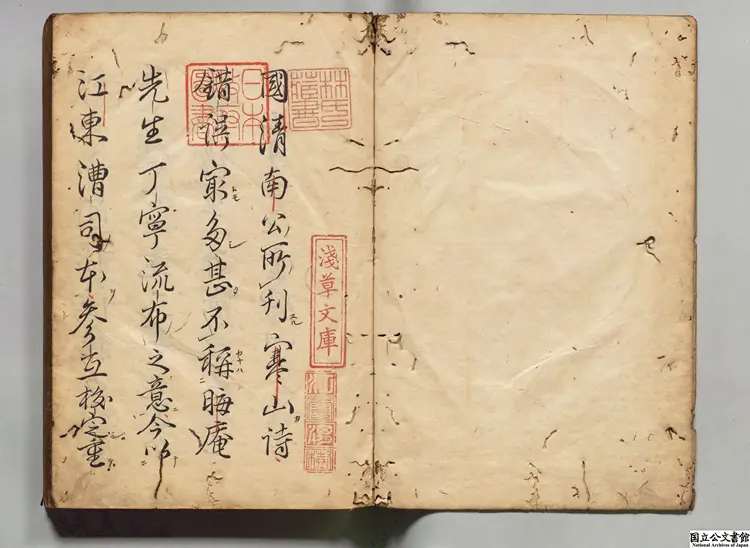 國清南公所刋寒山詩
錯誤冣多甚不稱晦庵
先生丁寧流布之意今以
江東漕司本參互挍定重
林氏藏書
日本
淺草文庫
国立公文書館
National Archives of Japan